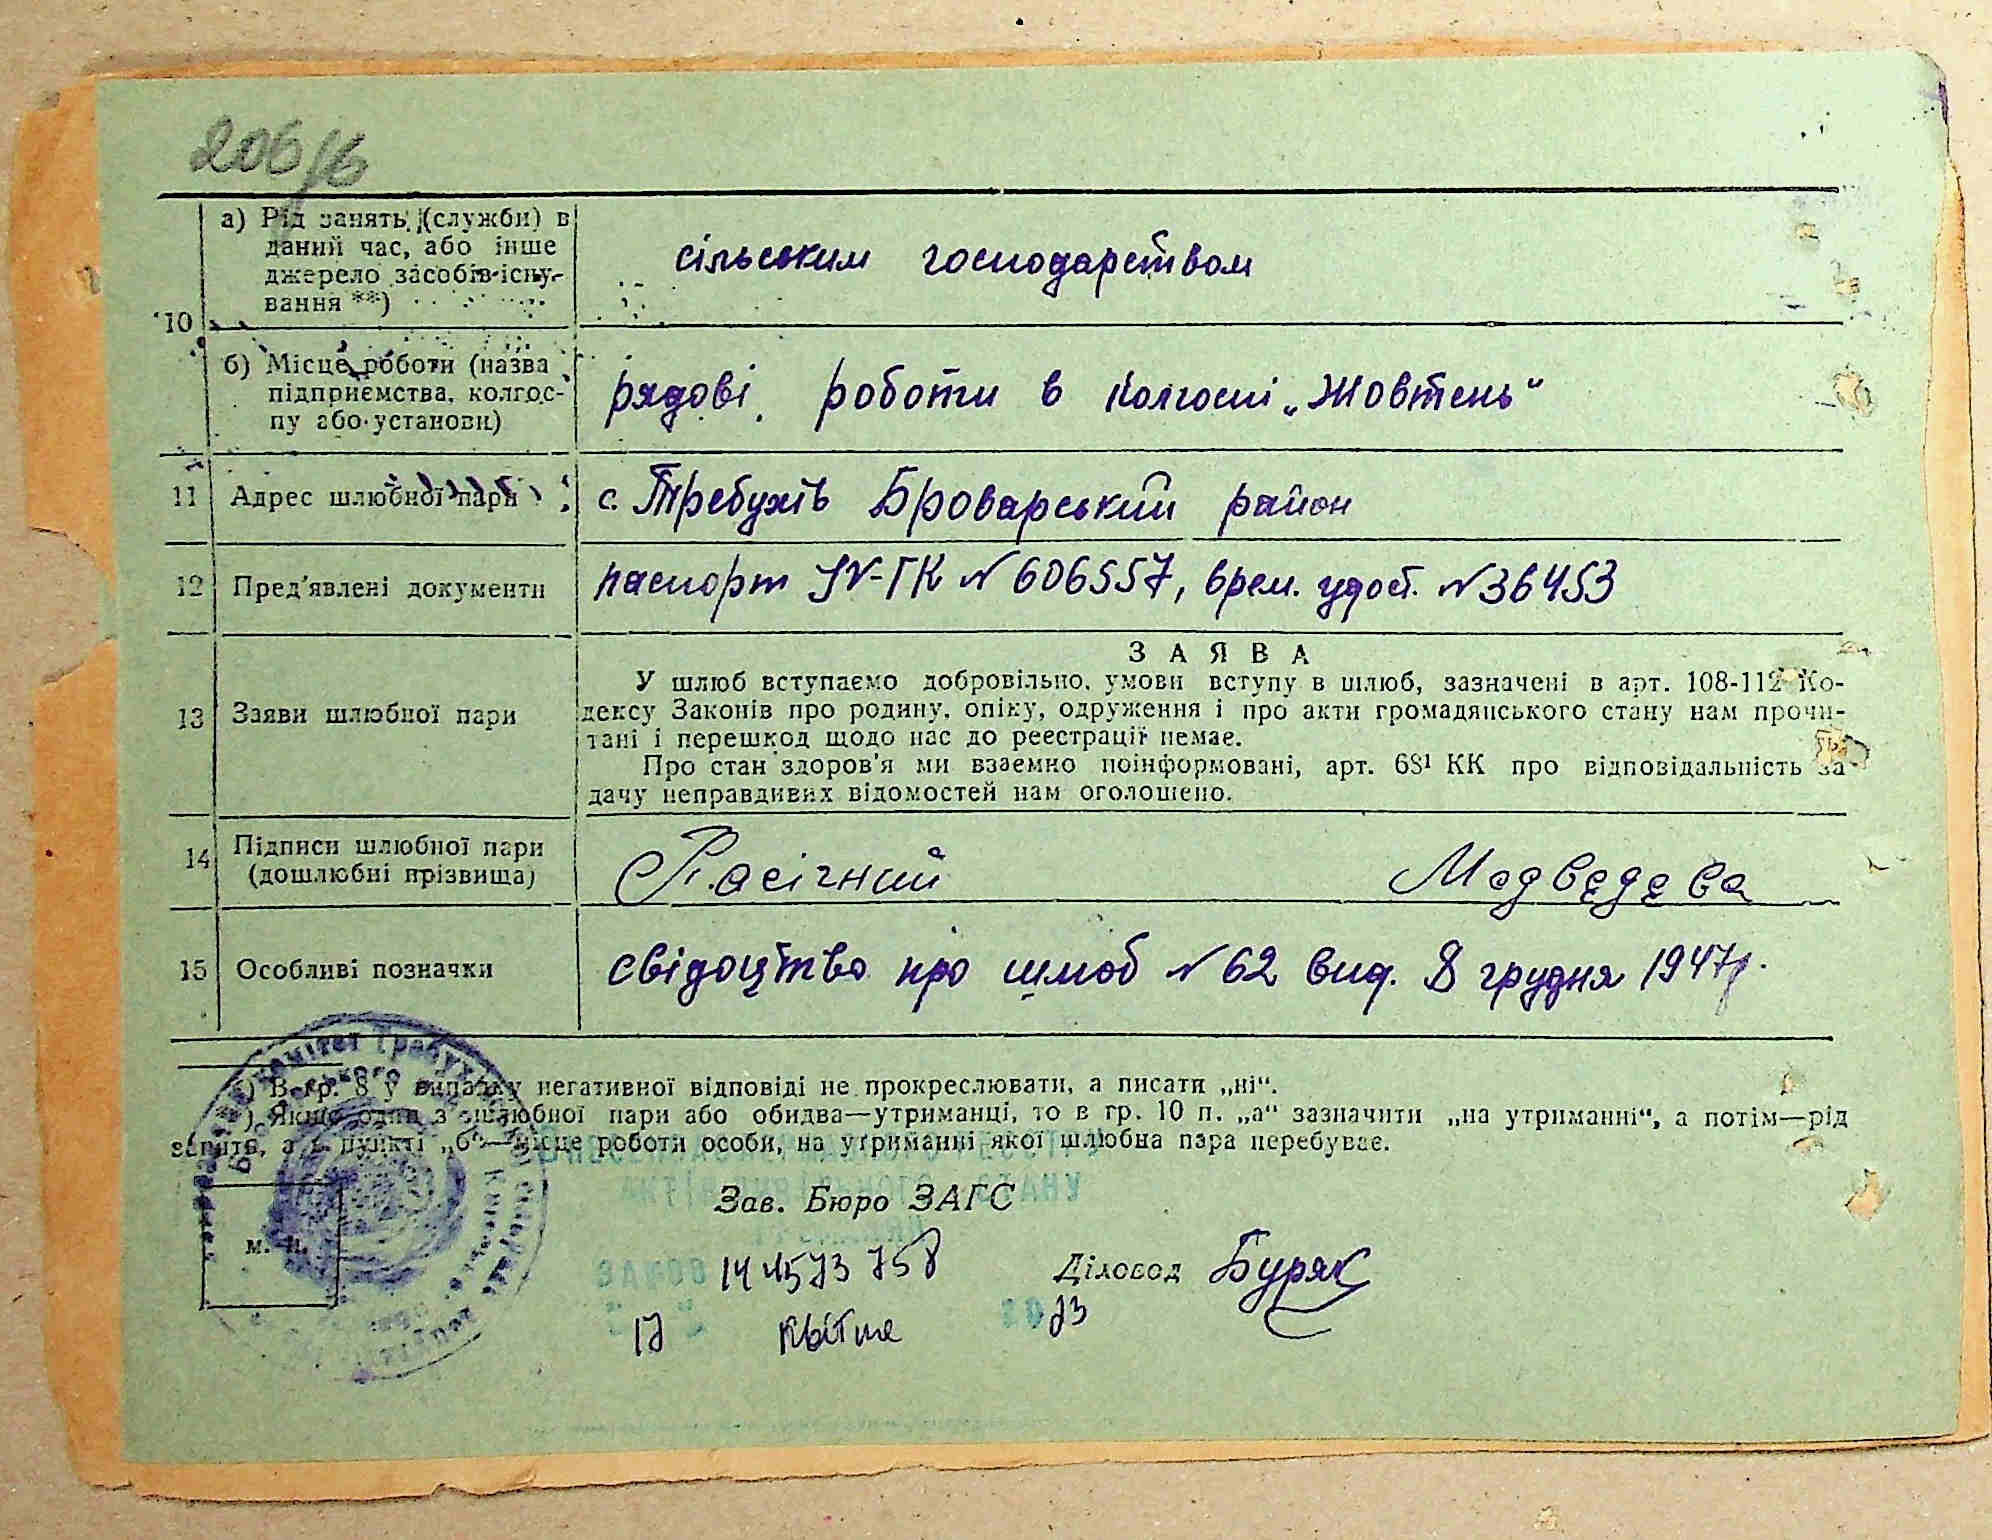 206/6
10
а) Рід занять (служби) в
даний час, або інше
джерело засобів існу-
вання **)
сільським господарством
б) Місце роботи (назва
підприємства, колгос-
пу або установи)
рядові роботи в колгоспі „Жовтень“
11 Адрес шлюбної пари
с. Требухів Броварський район
12 Пред'явлені документи
паспорт IV-ГК № 606557, врем. удост. № 36453
13 Заяви шлюбної пари
ЗАЯВА
У шлюб вступаємо добровільно, умови вступу в шлюб, зазначені в арт. 108-112 Ко-
дексу Законів про родину, опіку, одруження і про акти громадянського стану нам прочи-
тані і перешкод щодо нас до реєстрації немає.
Про стан здоров'я ми взаємно поінформовані, арт. 68¹ КК про відповідальність за
дачу неправдивих відомостей нам оголошено.
14 Підписи шлюбної пари
(дошлюбні прізвища)
Пасічний Медведева
15 Особливі позначки
свідоцтво про шлюб № 62 вид. 8 грудня 1947р.
*) В гр. 8 у випадку негативної відповіді не прокреслювати, а писати „ні“.
) Якщо один з шлюбної пари або обидва—утриманці, то в гр. 10 п. „а“ зазначити „на утриманні“, а потім—рід
занять, а в пункті „б“—місце роботи особи, на утриманні якої шлюбна пара перебуває.
Зав. Бюро ЗАГС
м. п.
Діловод Буряк
17 квітня 73